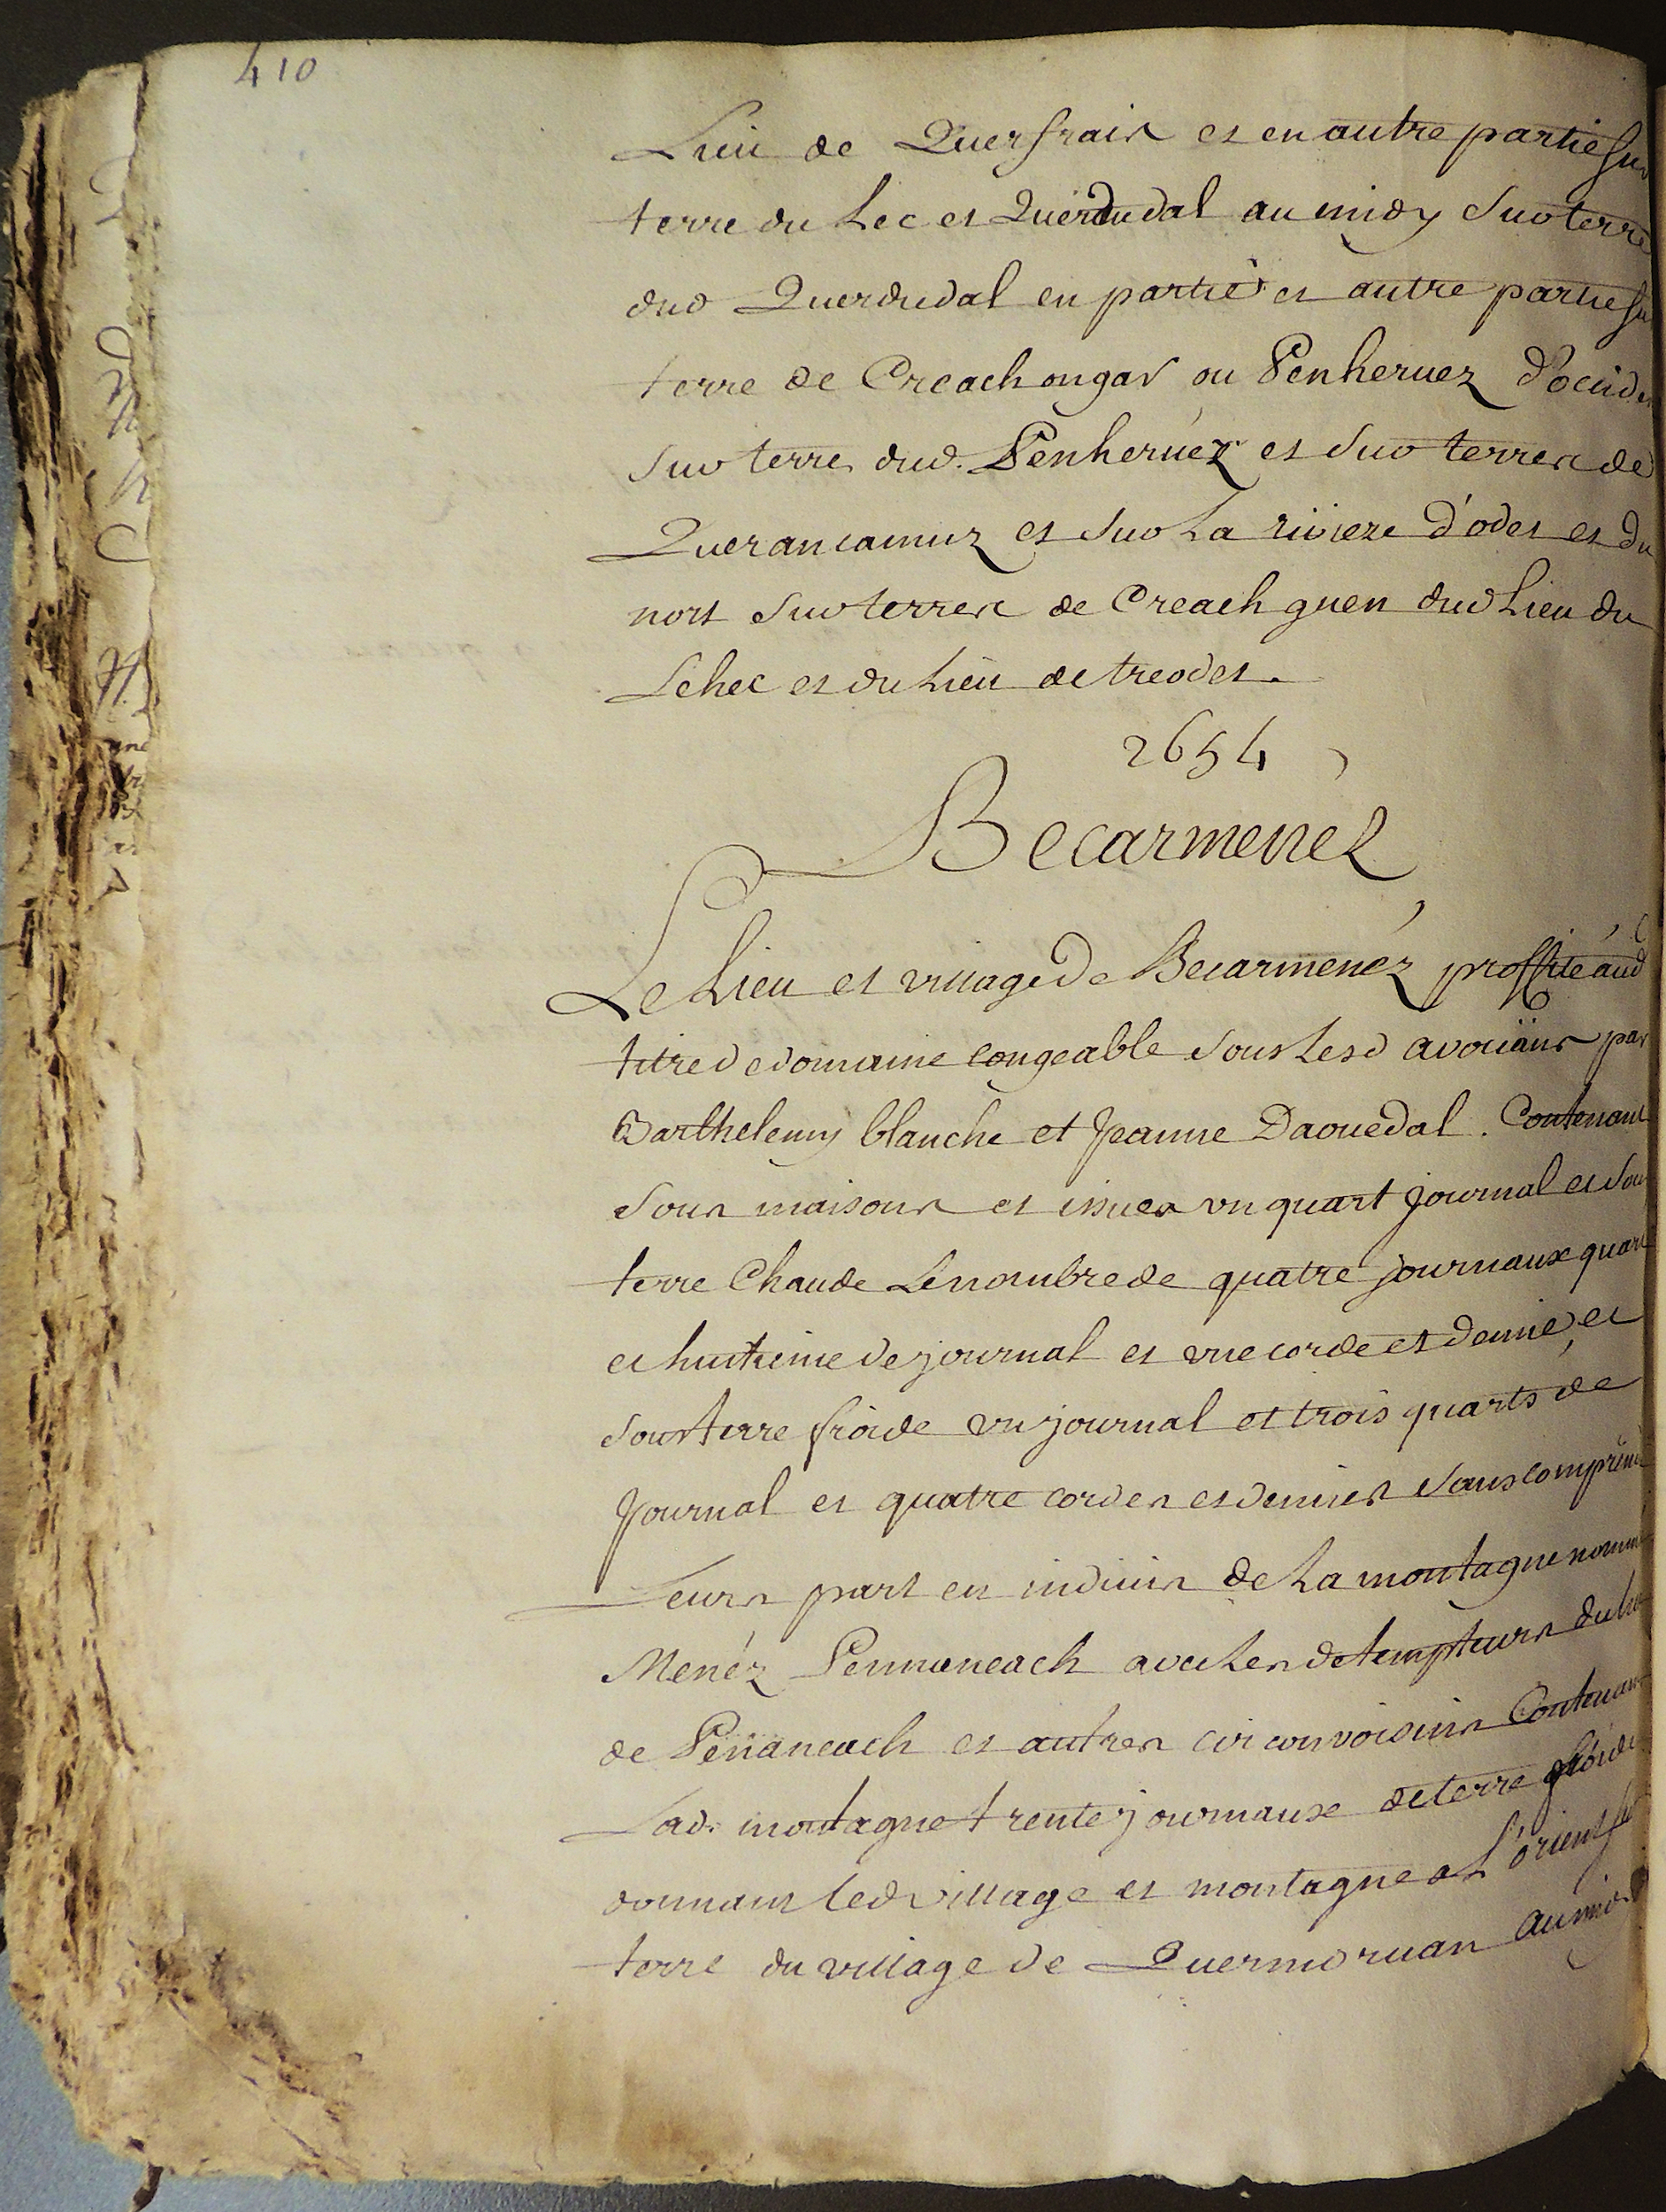 410
Lieu de Querfrais et en autre partie sur
terre du Lec et Querdudal au midy sur terre
dud Querdudal en partie et autre partie su
terre de Creachongar ou Penheruez d'occide
sur terre dud. Penheruez et sur terres de
Querancamuz et sur La riviere d'odet et du
nort sur terres de Creach guen dud Lieu du
Lehec et du Lieu de treodet.
2654
Becarmenez
Le Lieu et village de Becarmenéz proffité aud
titre de domaine congeable sous Lesd avoüans par
Barthelemy blanche et Jeanne Daouedal. Contenant
sous maisons et issues un quart Journal et sou
terre Chaude Le nombre de quatre journaux quart
et huitieme de journal et une corde et demie, et
sous terre froide un journal et trois quarts de
Journal et quatre cordes et demies sans comprend
Leurs part en indivis de La montagne nomm
Menéz Pennaneach avec Les detempteurs du lieu
de Penaneach et autres circonvoisins Contenant
Lad. montagne trente journaux de terre froide
donnant led village et montagne de L'orient su
terre du village de Quermoruan au mid